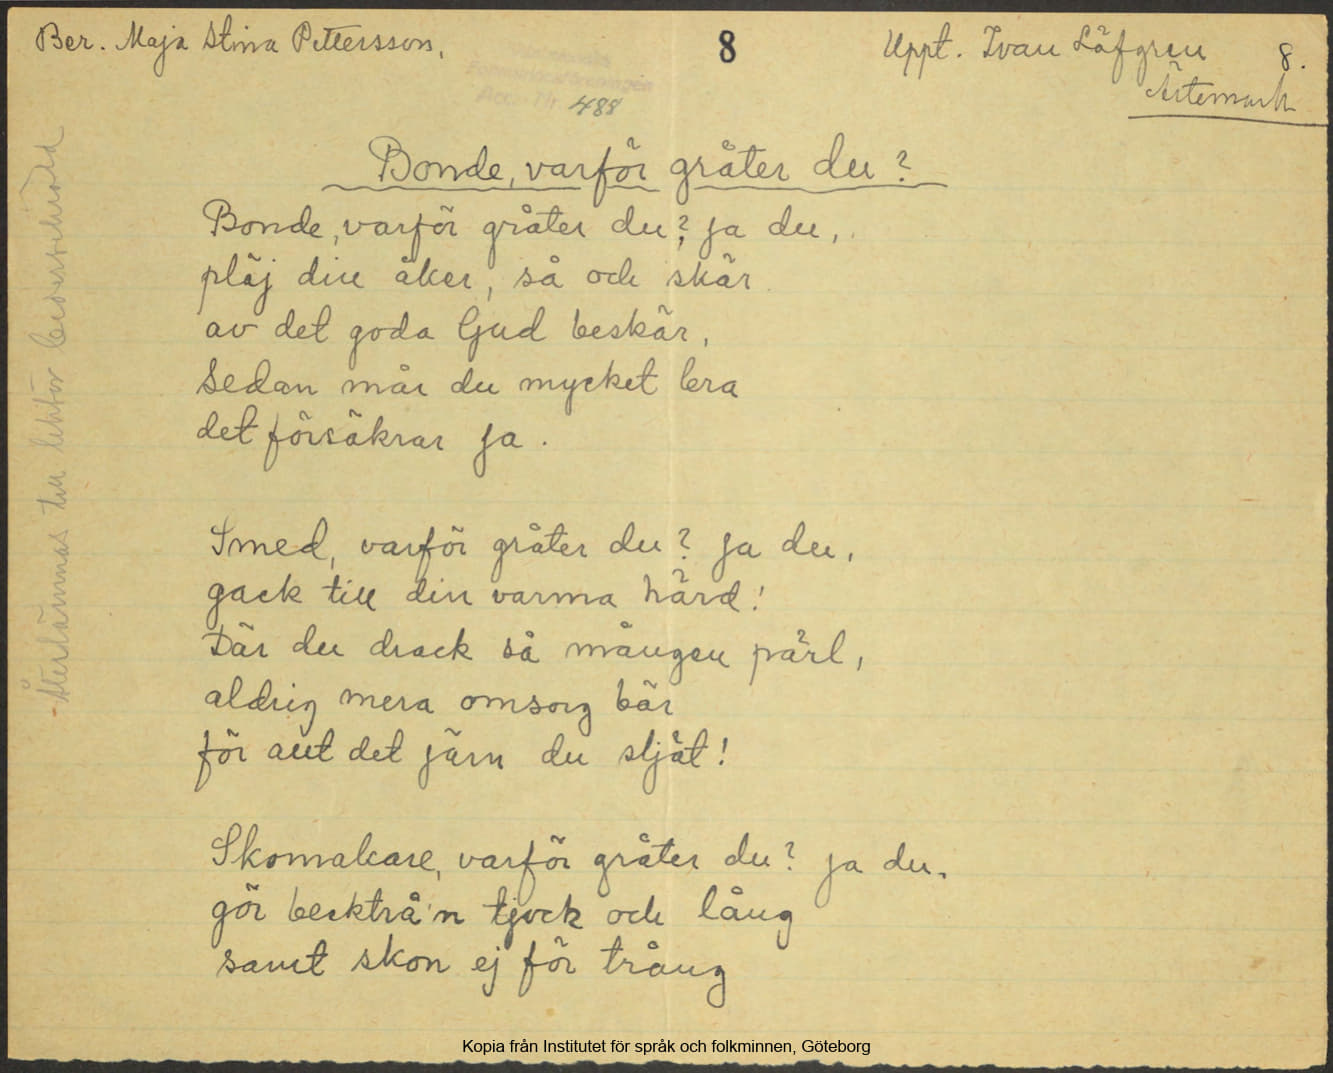 Ber. Maja Stina Pettersson, 8 Uppt. Ivan Löfgren 8.
Ärtemark
Acc. Nr. 488
Bonde, varför gråter du?
Bonde, varför gråter du? ja du,
plöj din åker, så och skär
av det goda Gud beskär,
sedan mår du mycket bra
det försäkrar ja.
Smed, varför gråter du? ja du,
gack till din varma härd!
Där du drack så mången pärl,
aldrig mera omsorg bär
för allt det järn du stjät!
Skomakare, varför gråter du? ja du,
gör becktrå'n tjock och lång
samt skon ej för trång
Återlämnas till lektor
Kopia från Institutet för språk och folkminnen, Göteborg